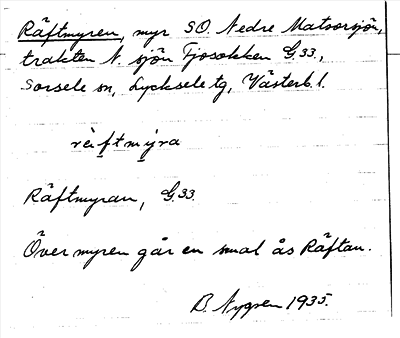 Räftmyren, myr SO. Nedre Matsorsjön,
trakten N. sjön Tjosokken G.33.,
Sorsele sn, Lycksele tg, Västerb. l.
rä̀ftmy̆ra
Räftmyran, G.33.
Över myren går en smal ås Räftan.
B. Nygren 1935.